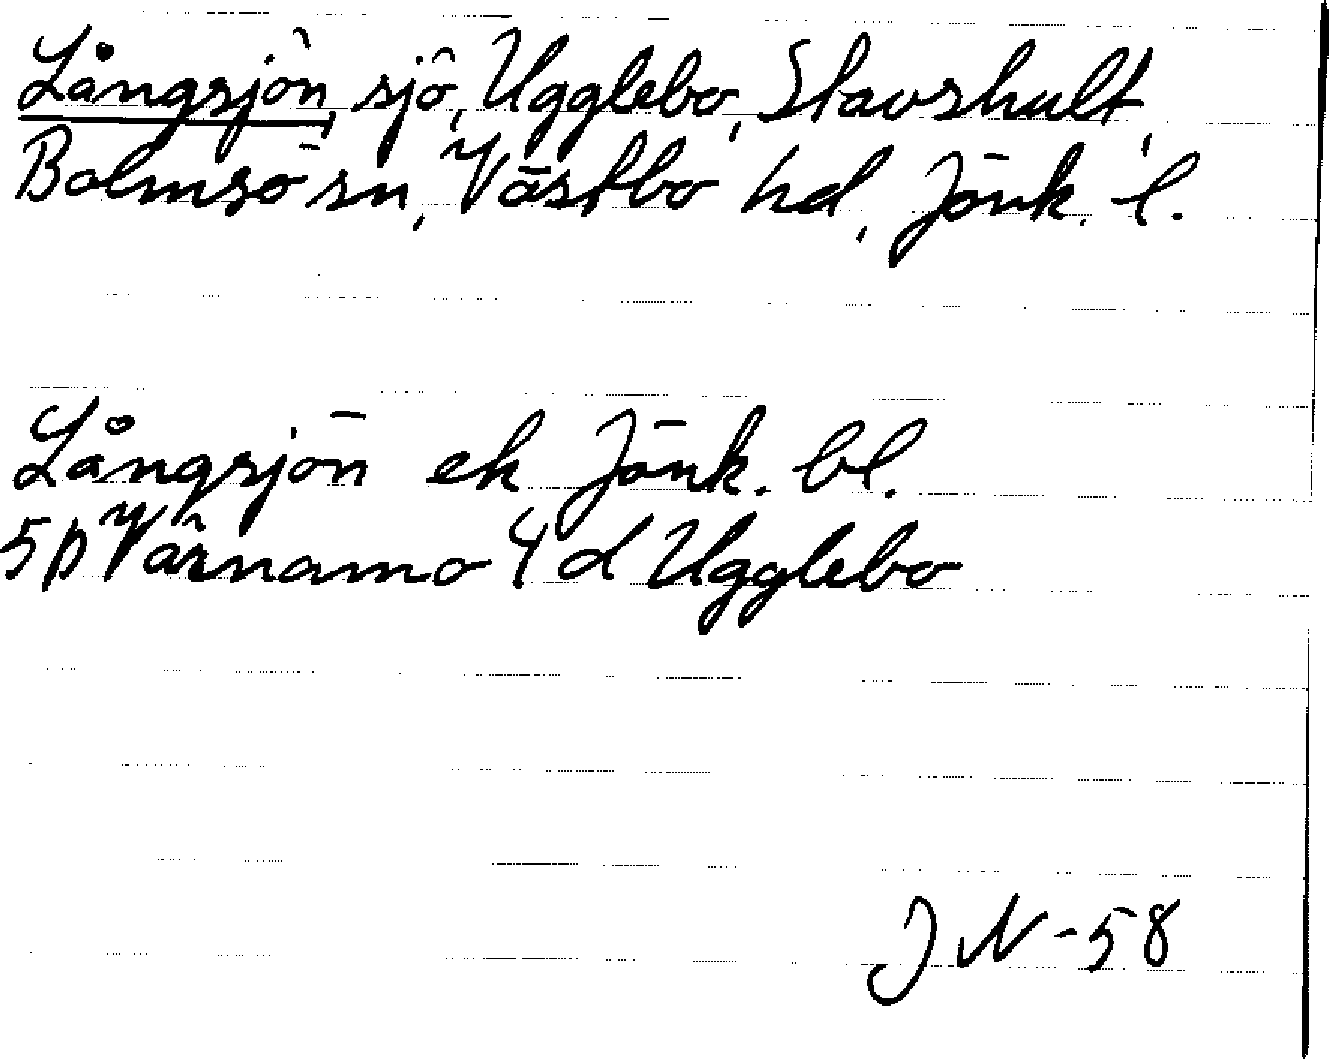 Långsjön, sjö, Ugglebo, Stavshult,
Bolmsö sn, Västbo hd, Jönk. l.
Långsjön ek Jönk. bl.
5D Värnamo 4 d Ugglebo
JN-58